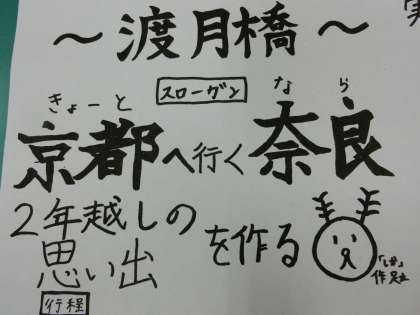 実
～渡月橋～
スローガン
きょーと
なら
京都へ行く奈良
2年越しの
思い出を作る
「しか」
行程